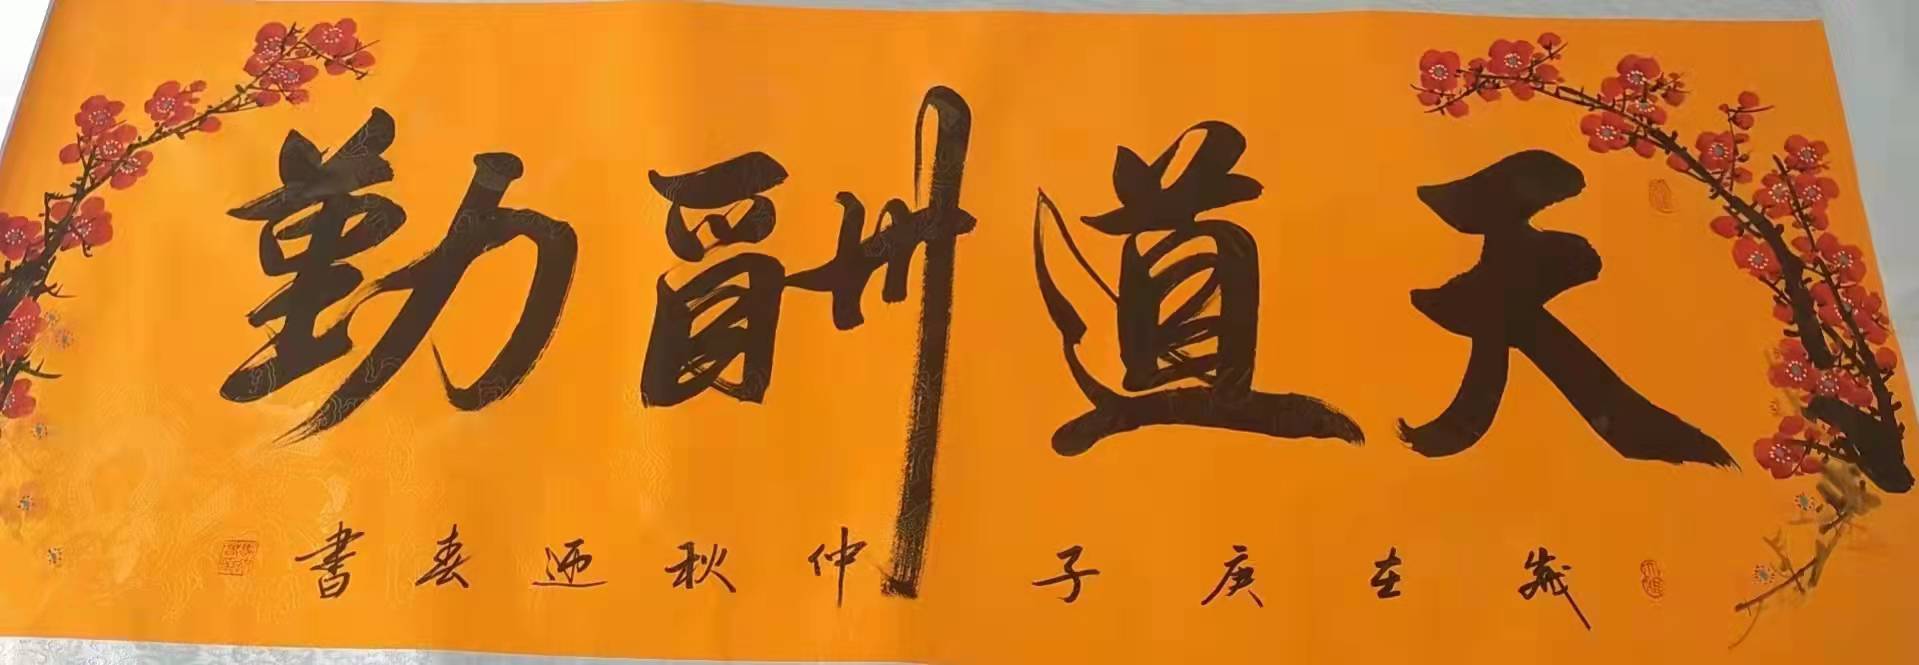 天道酬勤
歲在庚子仲秋迎春書